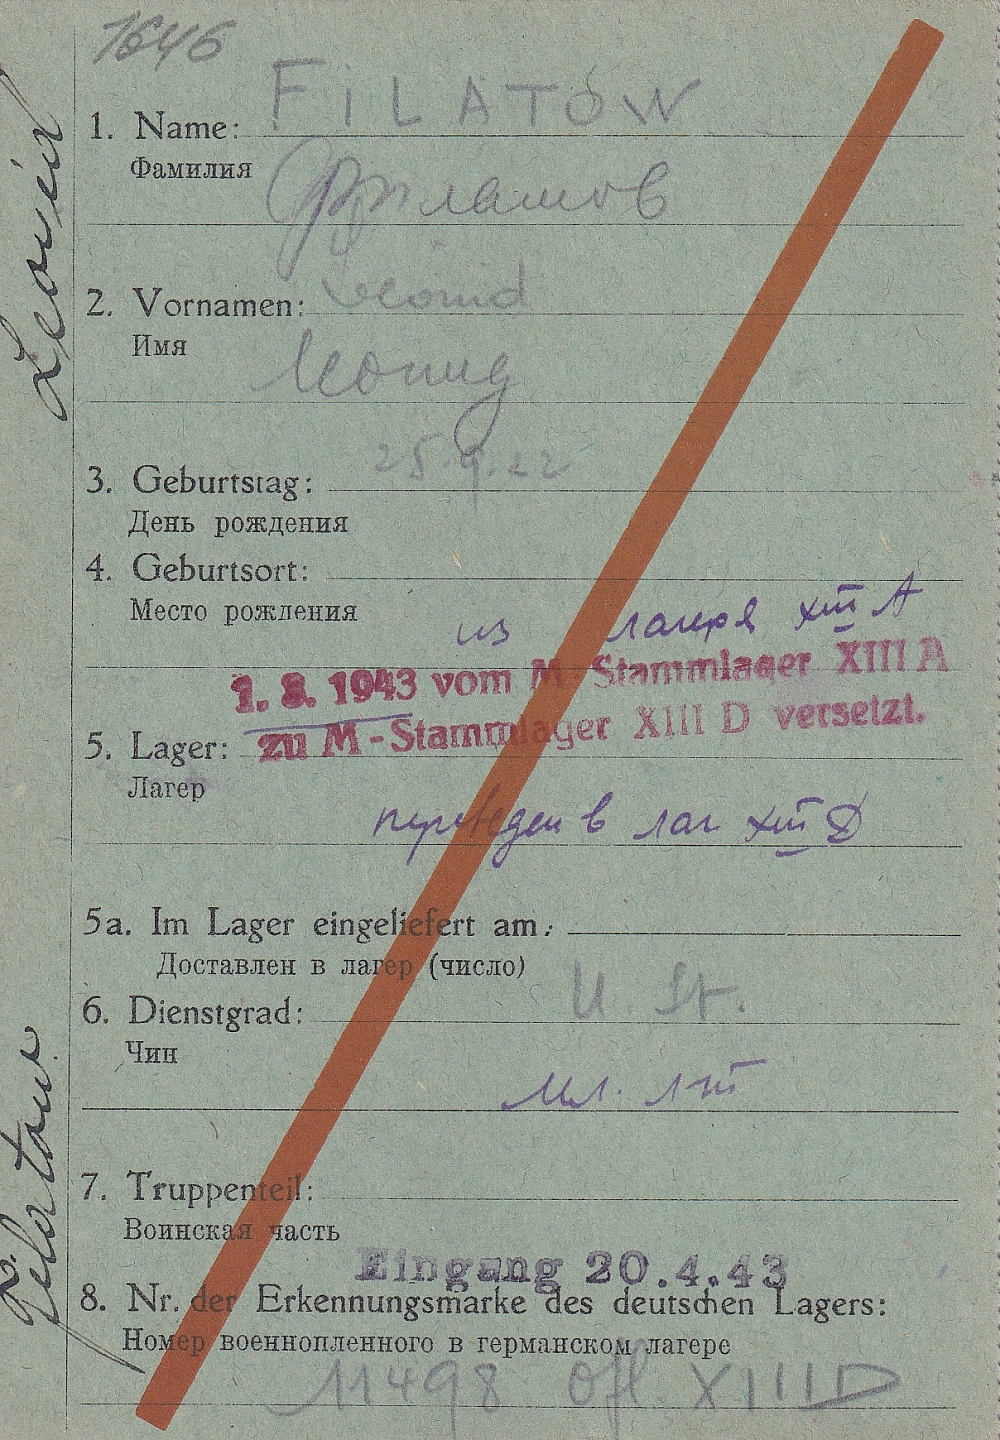 1646
1. Name: FiLATOW
Фамилия
Филатов
2. Vornamen: Leonid
Имя
Леонид
3. Geburtstag: 25.9.22
День рождения
4. Geburtsort:
Место рождения
из лагеря XIII A
1. 8. 1943 vom M-Stammlager XIII A
5. Lager: zu M-Stammlager XIII D versetzt.
Лагерь
переведен в лаг XIII D
5a. Im Lager eingeliefert am:
Доставлен в лагер (число)
6. Dienstgrad: U. Lt.
Чин
Мл. л-т
7. Truppenteil:
Воинская часть
Eingang 20.4.43
8. Nr. der Erkennungsmarke des deutschen Lagers:
Номер военнопленного в германском лагере
11498 Ofl. XIII D
Filatow Leonid